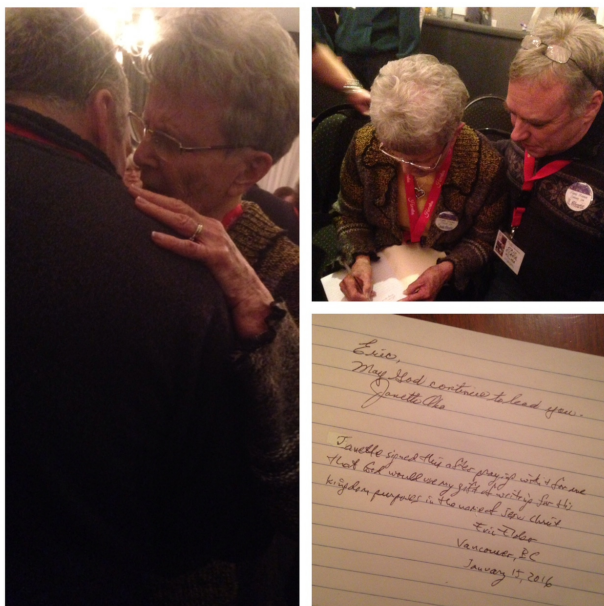 Eric,
May God continue to lead you.
Janette Oke
Janette signed this after praying with & for me
that God would use my gift of writing for His
kingdom purposes in the name of Jesus Christ
Eric Elder
Vancouver, BC
January 15, 2016